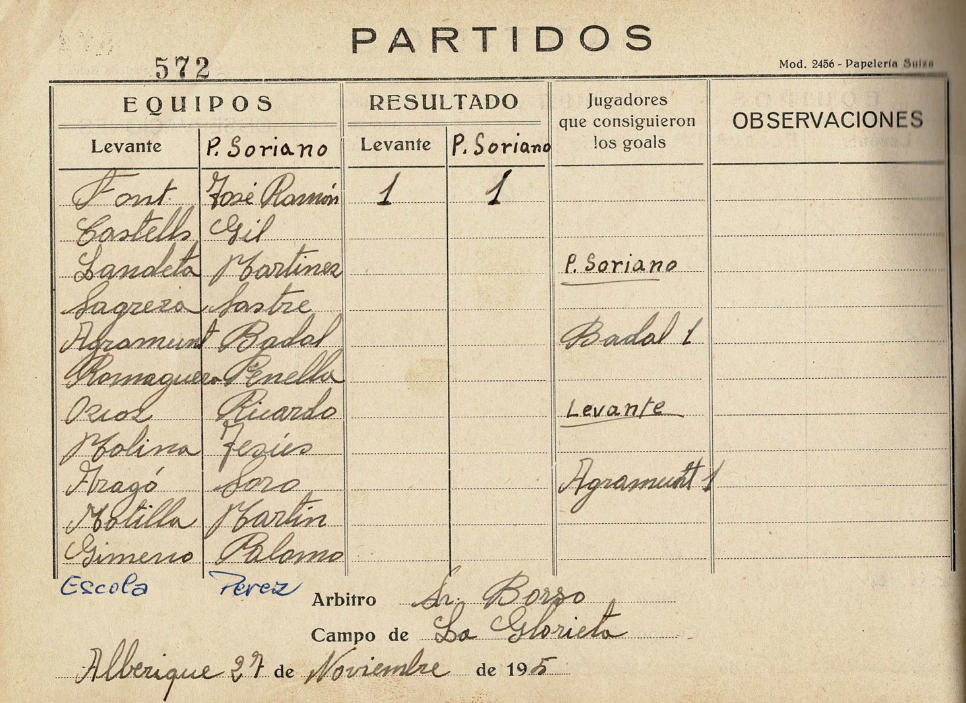 PARTIDOS
572
Mod. 2456 - Papelería Suiza
EQUIPOS RESULTADO Jugadores que consiguieron los goals OBSERVACIONES
Levante P. Soriano Levante P. Soriano
Font José Ramón 1 1
Castells Gil
Landeta Martinez P. Soriano
Sagreza Sastre
Agramunt Badal Badal 1
Romaguera Penella
Ricardo Levante
Molina Jesús
Aragó Soro Agramunt 1
Motilla Martin
Gimeno Palomo
Escola Perez
Arbitro Sr. Borso
Campo de La Glorieta
Alberique 27 de Noviembre de 195